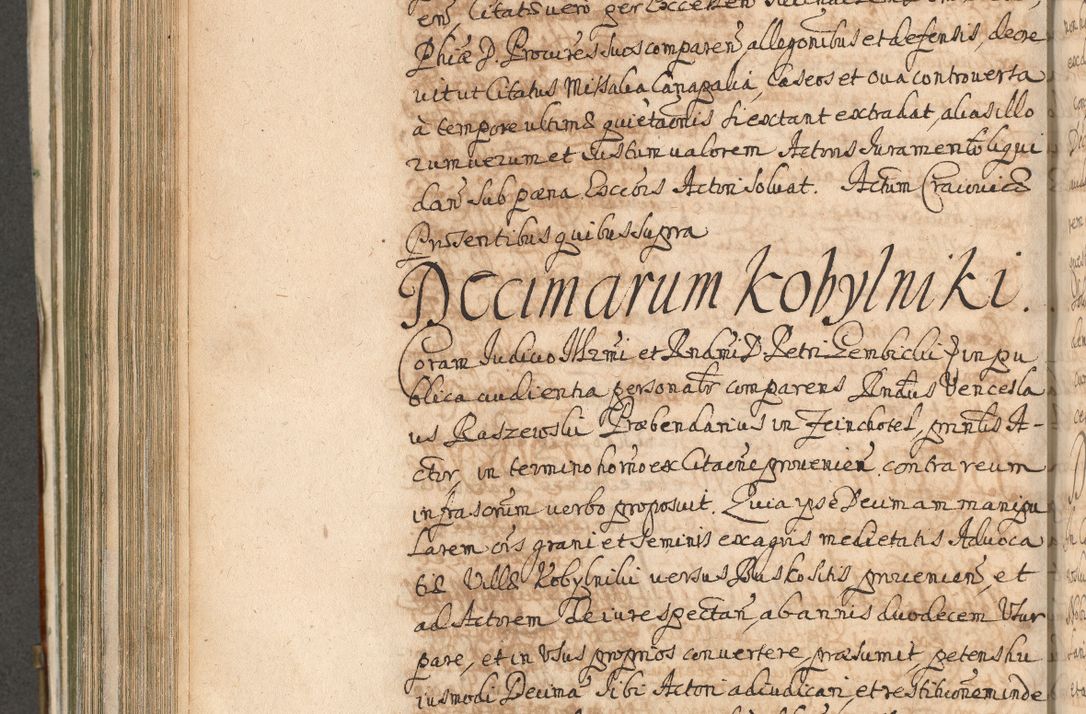 Phiæ D. Procures suos comparen, allegonibus et defensis, decre
vit ut Citatus Missalia Canapalia, Caseos et Ova controverta
à tempore ultimæ quietaonis si extant extradat, alias illo
rum verum et Iustum valorem Actoris Iuramento liqui
dan sub pæna Excōis Actori solvat. Actum Cracoviæ
Præsentibus quibus supra
Decimarum Kobylniki.
Coram Iudicio Illrmi et Rndmi D. Petri Gembicki in pu
blica audientia personalr comparens Rndus Vencesla
us Raszewski Præbendarius in Jeinchotel, prntis A-
ctor, in termino horno ex Citaone provenien, contra reum
infrascrum verbo proposuit. Quia ipse Decimam manipu
larem cōis grani et seminis ex agris medietatis Advoca
tiæ Villæ Kobylniki versus Busko sitis, provenien, et
ad Actorem de iure spectan, ab annis duodecem Usur
pare, et in Usus proprios convertere præsumit, petens hu
iusmodi Decima sibi Actori adiudicari, et restitionem inde